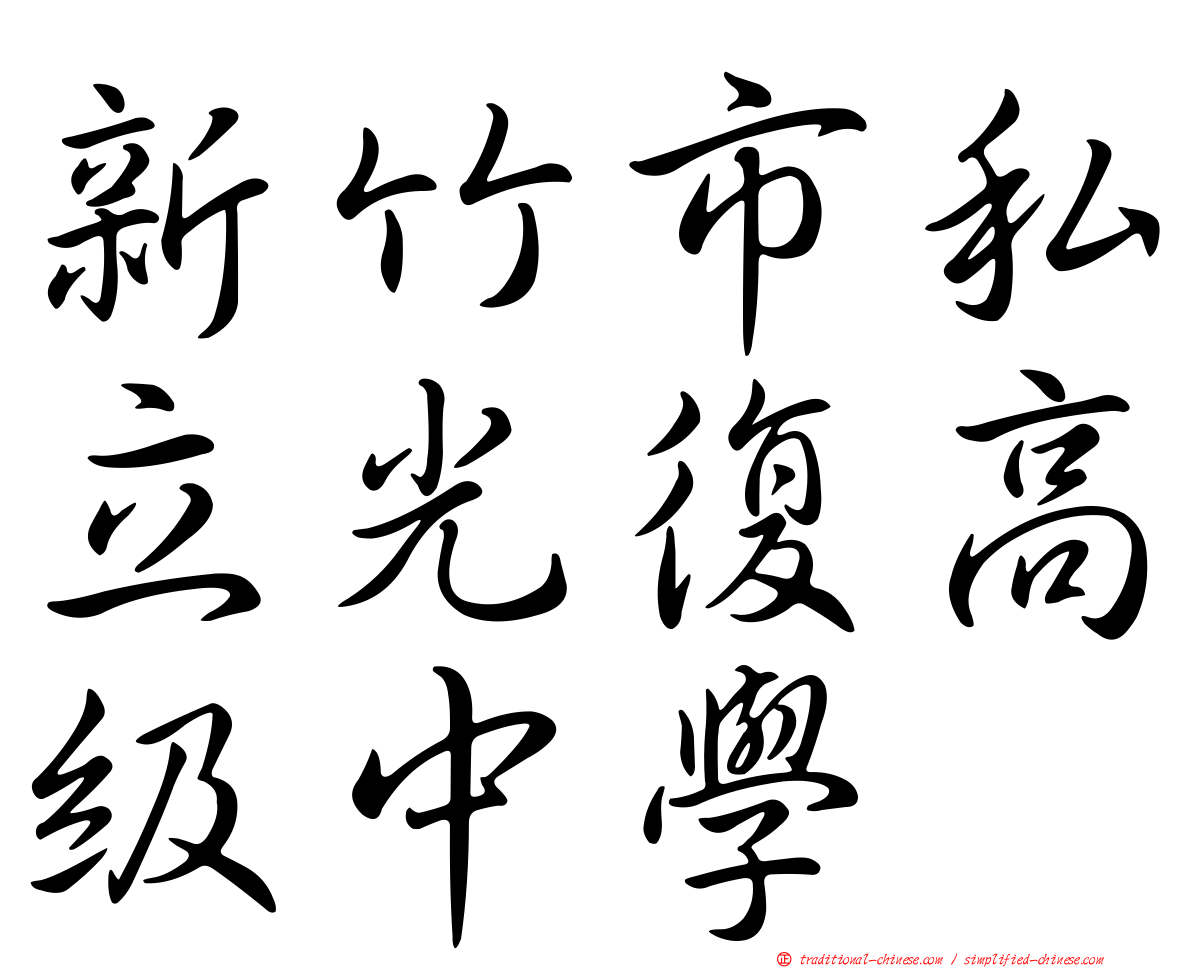 新竹市私
立光復高
級中學
㊣ traditional-chinese.com / simplified-chinese.com